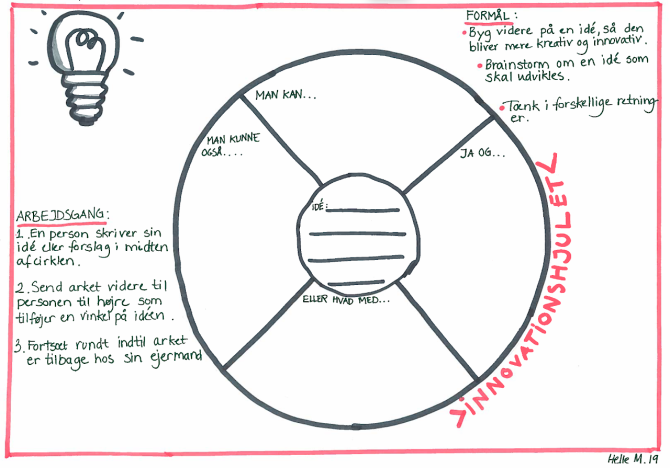 FORMÅL:
• Byg videre på en idé, så den
bliver mere kreativ og innovativ.
• Brainstorm om en idé som
skal udvikles.
• Tænk i forskellige retning-
er.
MAN KAN...
MAN KUNNE
OGSÅ....
JA OG...
IDÉ:
ELLER HVAD MED...
>INNOVATIONSHJULET<
ARBEJDSGANG:
1. En person skriver sin
idé eller forslag i midten
af cirklen.
2. Send arket videre til
personen til højre som
tilføjer en vinkel på idéen.
3. Fortsæt rundt indtil arket
er tilbage hos sin ejermand
Helle M. 19